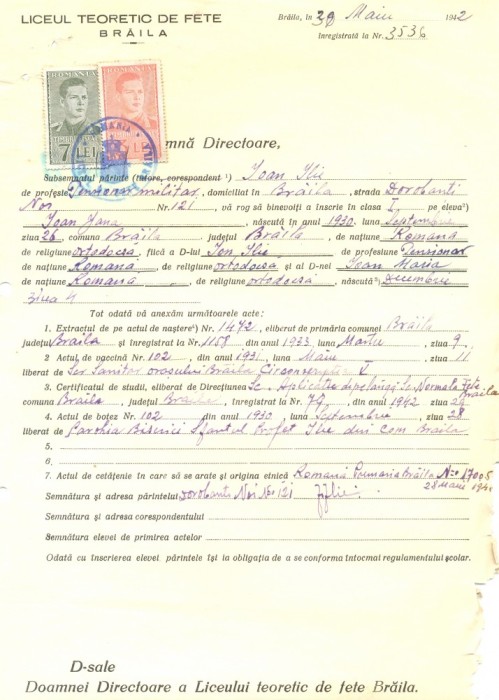 LICEUL TEORETIC DE FETE
BRĂILA
Brăila, în 29 Maiu 1942
înregistrată la Nr. 3536
ROMANIA ROMANIA
7 LEI LEI
mnă Directoare,
Subsemnatul părinte (tutore, corespondent ¹) Ioan Ilie
de profesie Pensionar militar, domiciliat în Brăila, strada Dorobanti
Noi Nr. 121, vă rog să binevoiți a înscrie în clasa I pe eleva²)
Ioan Jana, născută în anul 1930 luna Septembrie
ziua 26 comuna Brăila județul Brăila, de națiune Romană
de religiune ortodocsă, fiică a D-lui Ion Ilie de profesiune Pensionar
de națiune Romană, de religiune ortodocsă și al D-nei Ioan Maria
de națiune Romană, de religiune ortodocsă, născută³) Decembrie
ziua 4
Tot odată vă anexăm următoarele acte:
1. Extractul de pe actul de naștere⁴) Nr. 1472, eliberat de primăria comunei Brăila
județul Braila și înregistrat la Nr. 1158 din anul 1933 luna Martie, ziua 9.
2 Actul de vaccină Nr. 102, din anul 1931, luna Maiu, ziua 11
liberat de Ser Sanitar orasului Brăila Circonscripția V
3. Certificatul de studii, eliberat de Direcțiunea Sc. Aplicatie de pe lângă Sc Normala Fete
comuna Braila, județul Braila, înregistrat la Nr. 79, din anul 1942 ziua 29 Braila
4. Actul de botez Nr. 102 din anul 1930, luna Septembrie, ziua 28
liberat de Parohia Bisericii Sfantul Profet Ilie din Com Braila
5.
6.
7. Actul de cetățenie în care să se arate și origina etnică Romană Primaria Brăila No 17005
28 Maiu 1941
Semnătura și adresa părintelui Dorobanti Noi No 121 Ilie
Semnătura și adresa corespondentului
Semnătura elevei de primirea actelor
Odată cu înscrierea elevei părintele își ia obligația de a se conforma întocmai regulamentului școlar.
D-sale
Doamnei Directoare a Liceului teoretic de fete Brăila.